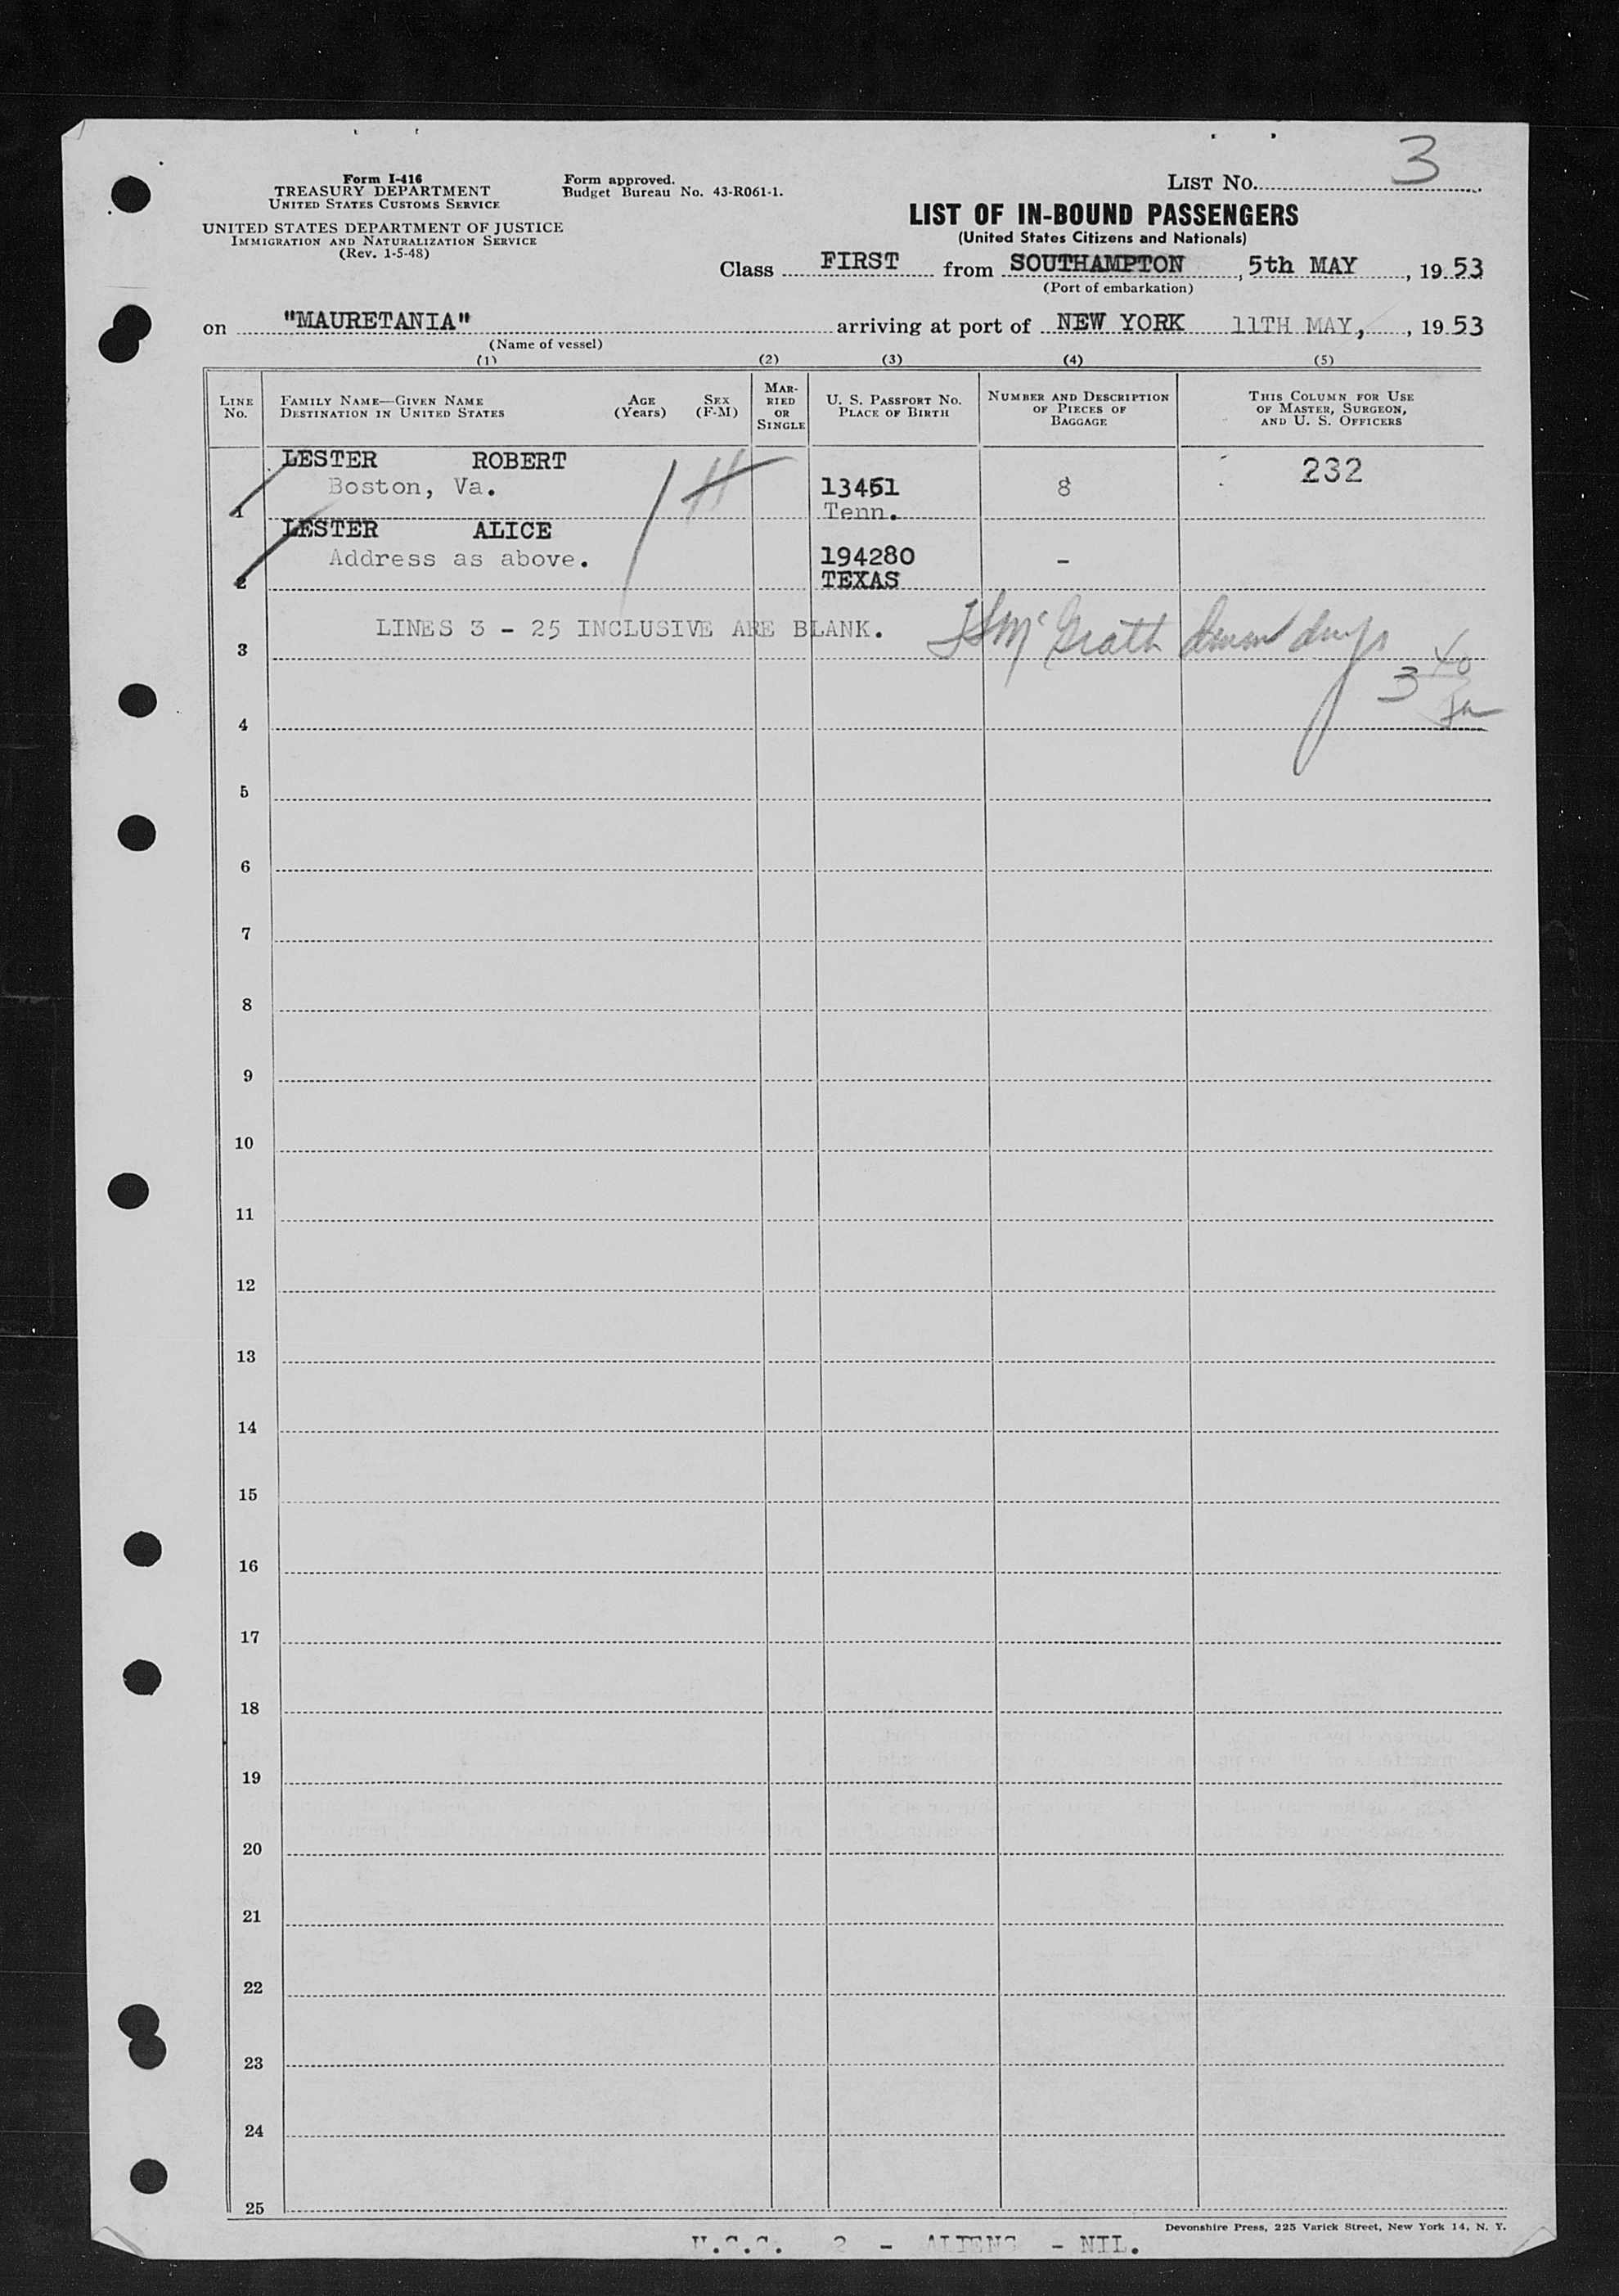 3
Form I-416
TREASURY DEPARTMENT
UNITED STATES CUSTOMS SERVICE
UNITED STATES DEPARTMENT OF JUSTICE
IMMIGRATION AND NATURALIZATION SERVICE
(Rev. 1-5-48)
Form approved.
Budget Bureau No. 43-R061-1.
LIST NO.
LIST OF IN-BOUND PASSENGERS
(United States Citizens and Nationals)
Class FIRST from SOUTHAMPTON, 5th MAY, 1953
(Port of embarkation)
on "MAURETANIA" arriving at port of NEW YORK 11TH MAY, , 1953
(Name of vessel)
(1) (2) (3) (4) (5)
LINE NO.
FAMILY NAME—GIVEN NAME
DESTINATION IN UNITED STATES
AGE (Years)
SEX (F-M)
MARRIED OR SINGLE
U. S. PASSPORT NO.
PLACE OF BIRTH
NUMBER AND DESCRIPTION
OF PIECES OF
BAGGAGE
THIS COLUMN FOR USE
OF MASTER, SURGEON,
AND U. S. OFFICERS
LESTER ROBERT 232
Boston, Va. 13461 8
1 Tenn.
LESTER ALICE
Address as above. 194280 -
2 TEXAS
LINES 3 - 25 INCLUSIVE ARE BLANK. McGrath
3
3 40
4
5
6
7
8
9
10
11
12
13
14
15
16
17
18
19
20
21
22
23
24
25
Devonshire Press, 225 Varick Street, New York 14, N. Y.
U.S.C. 2 - ALIENS - NIL.